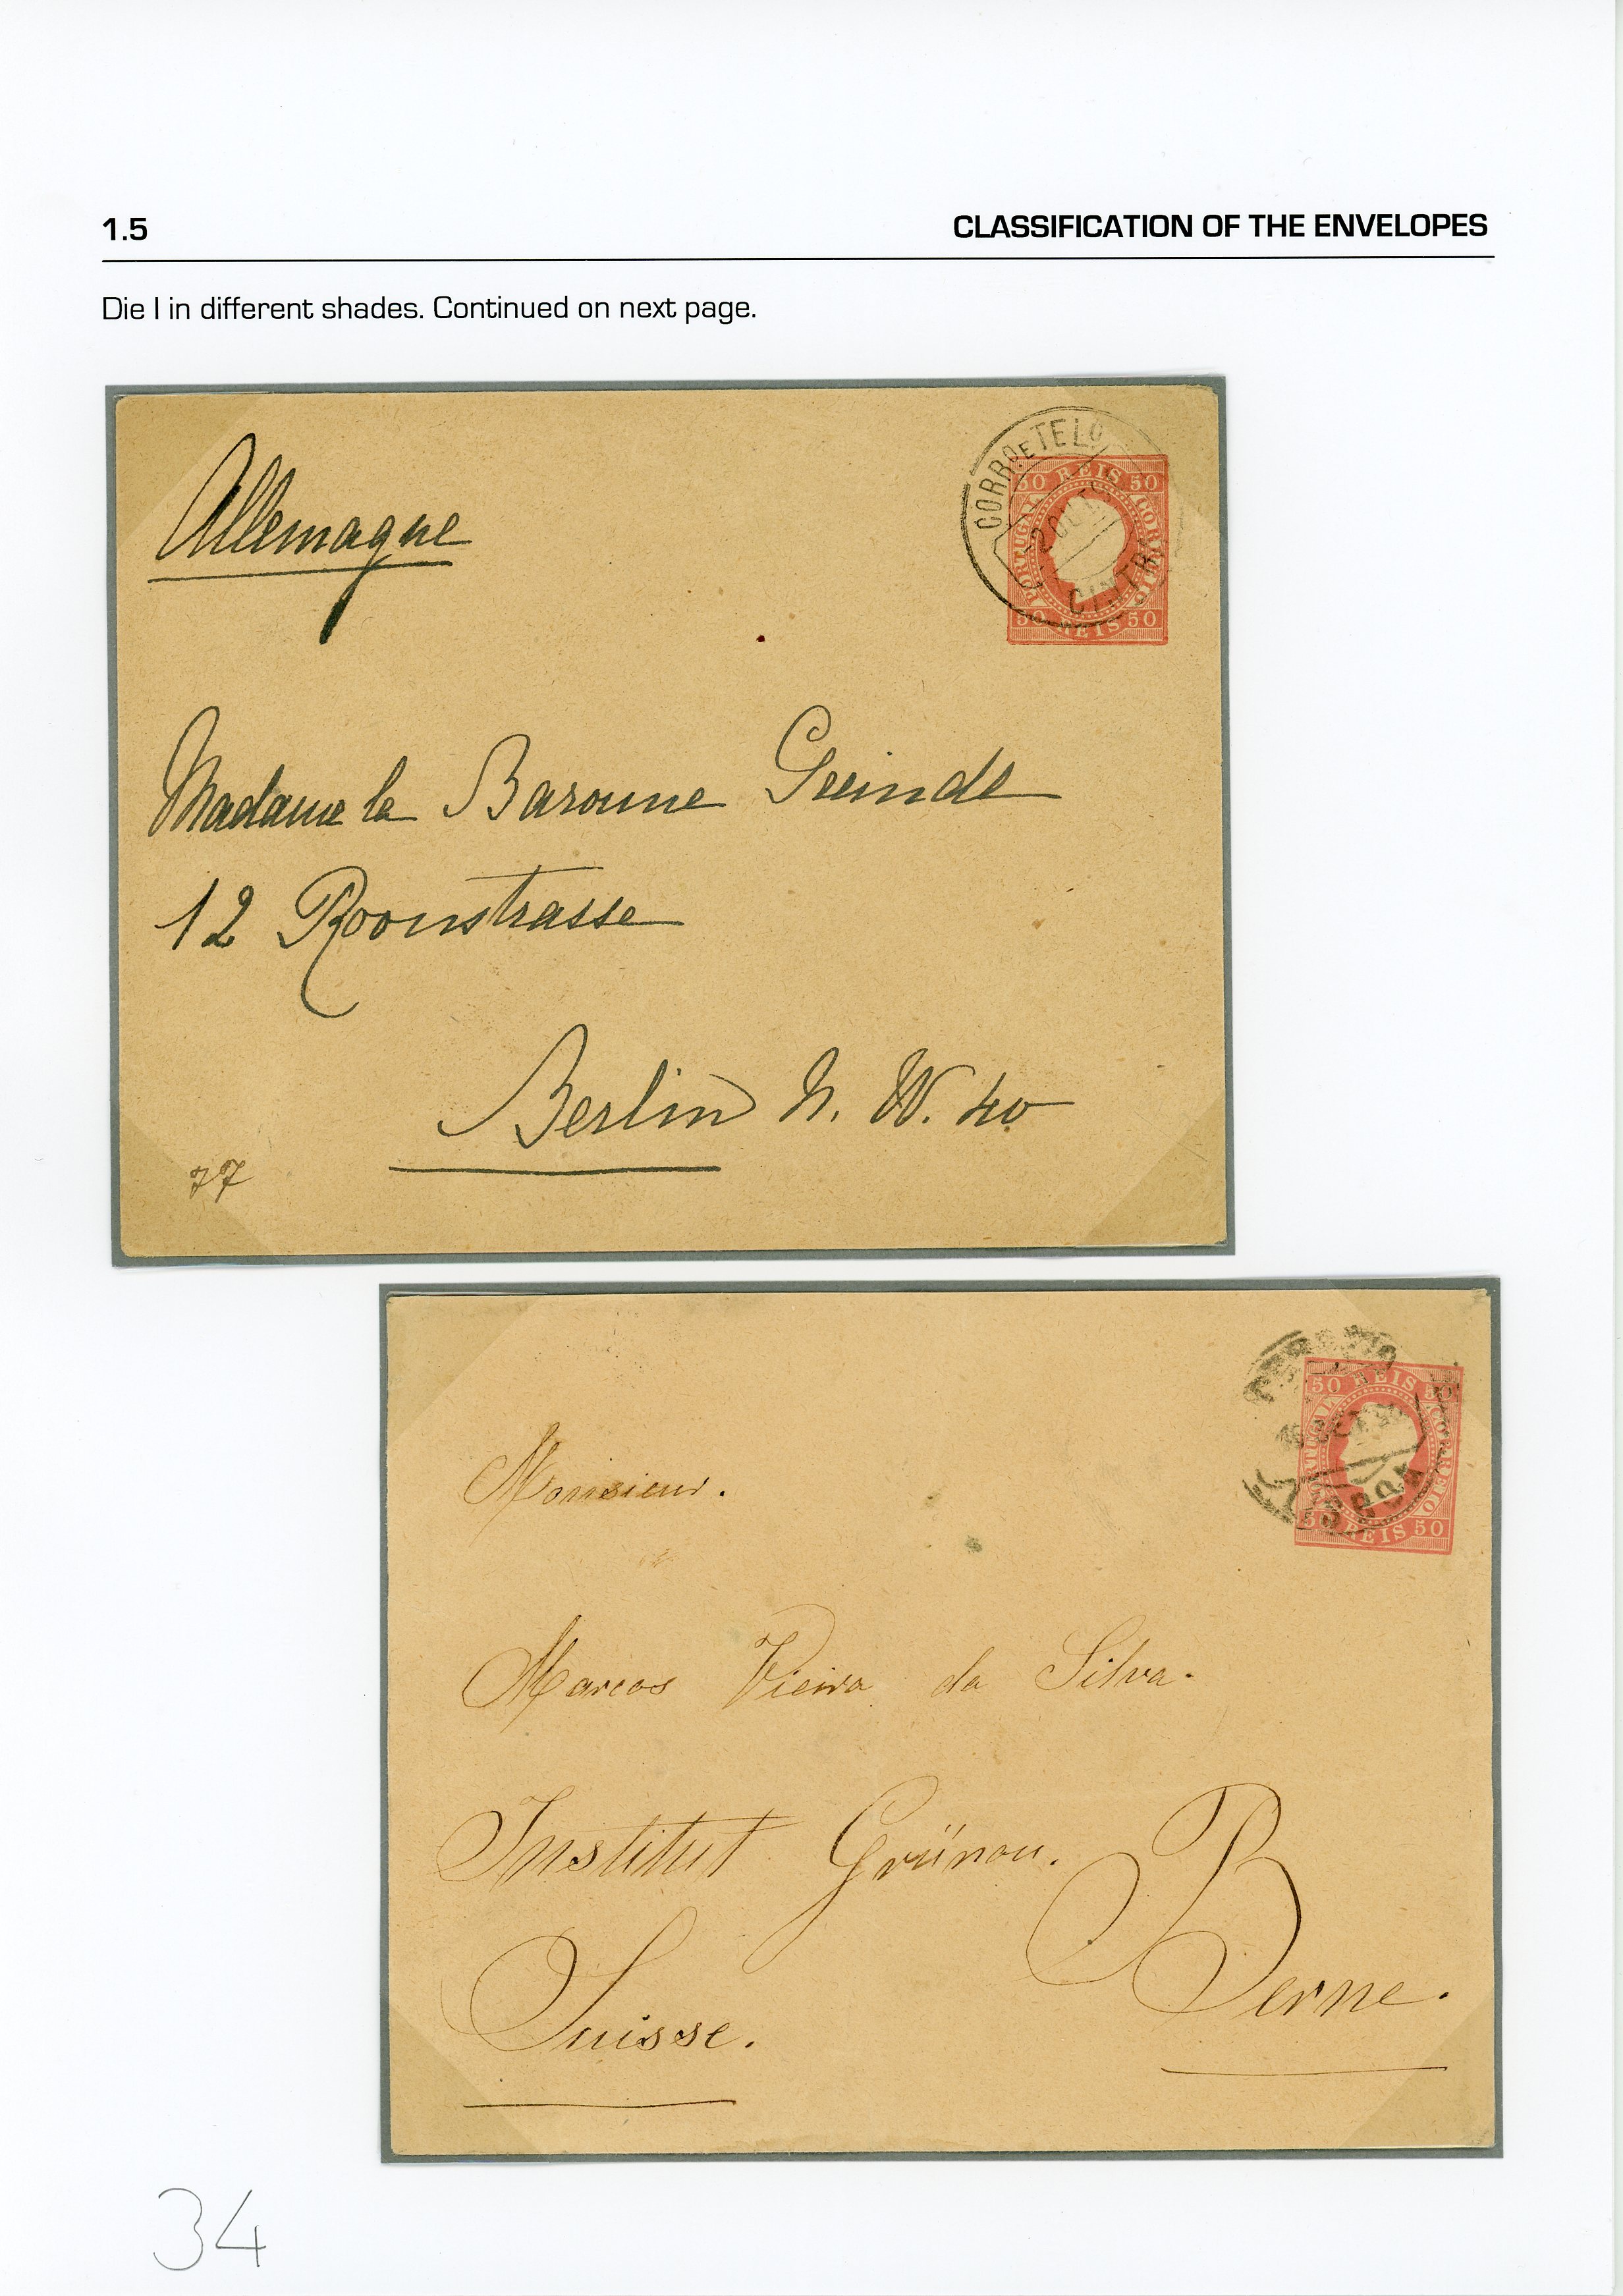 1.5 CLASSIFICATION OF THE ENVELOPES
Die I in different shades. Continued on next page.
CORRO E TELO
50 REIS 50
PORTUGAL
CORREIO
CINTRA
50 REIS 50
Allemagne
Madame la Baronne Greindl
12 Roonstrasse
Berlin N. W. 40
77
50 REIS 50
PORTUGAL
CORREIO
LISBOA
50 REIS 50
Monsieur.
Marcos Vieira da Silva.
Institut Grünau.
Berne.
Suisse.
34